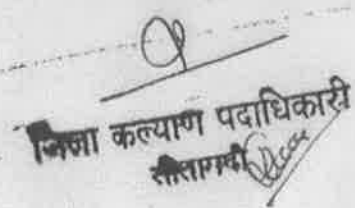 जिला कल्याण पदाधिकारी
सीतामढ़ी